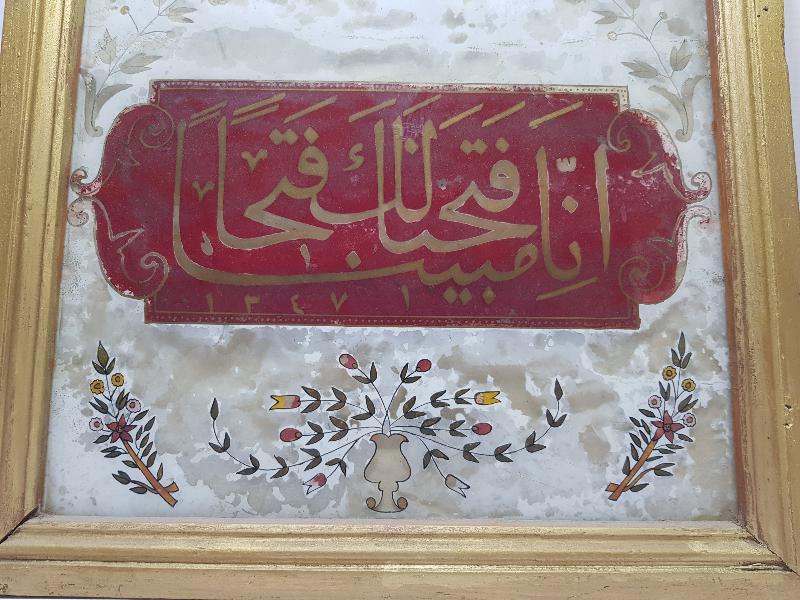 انّا فتحنا لك فتحًا مبينا
١٢٤٧